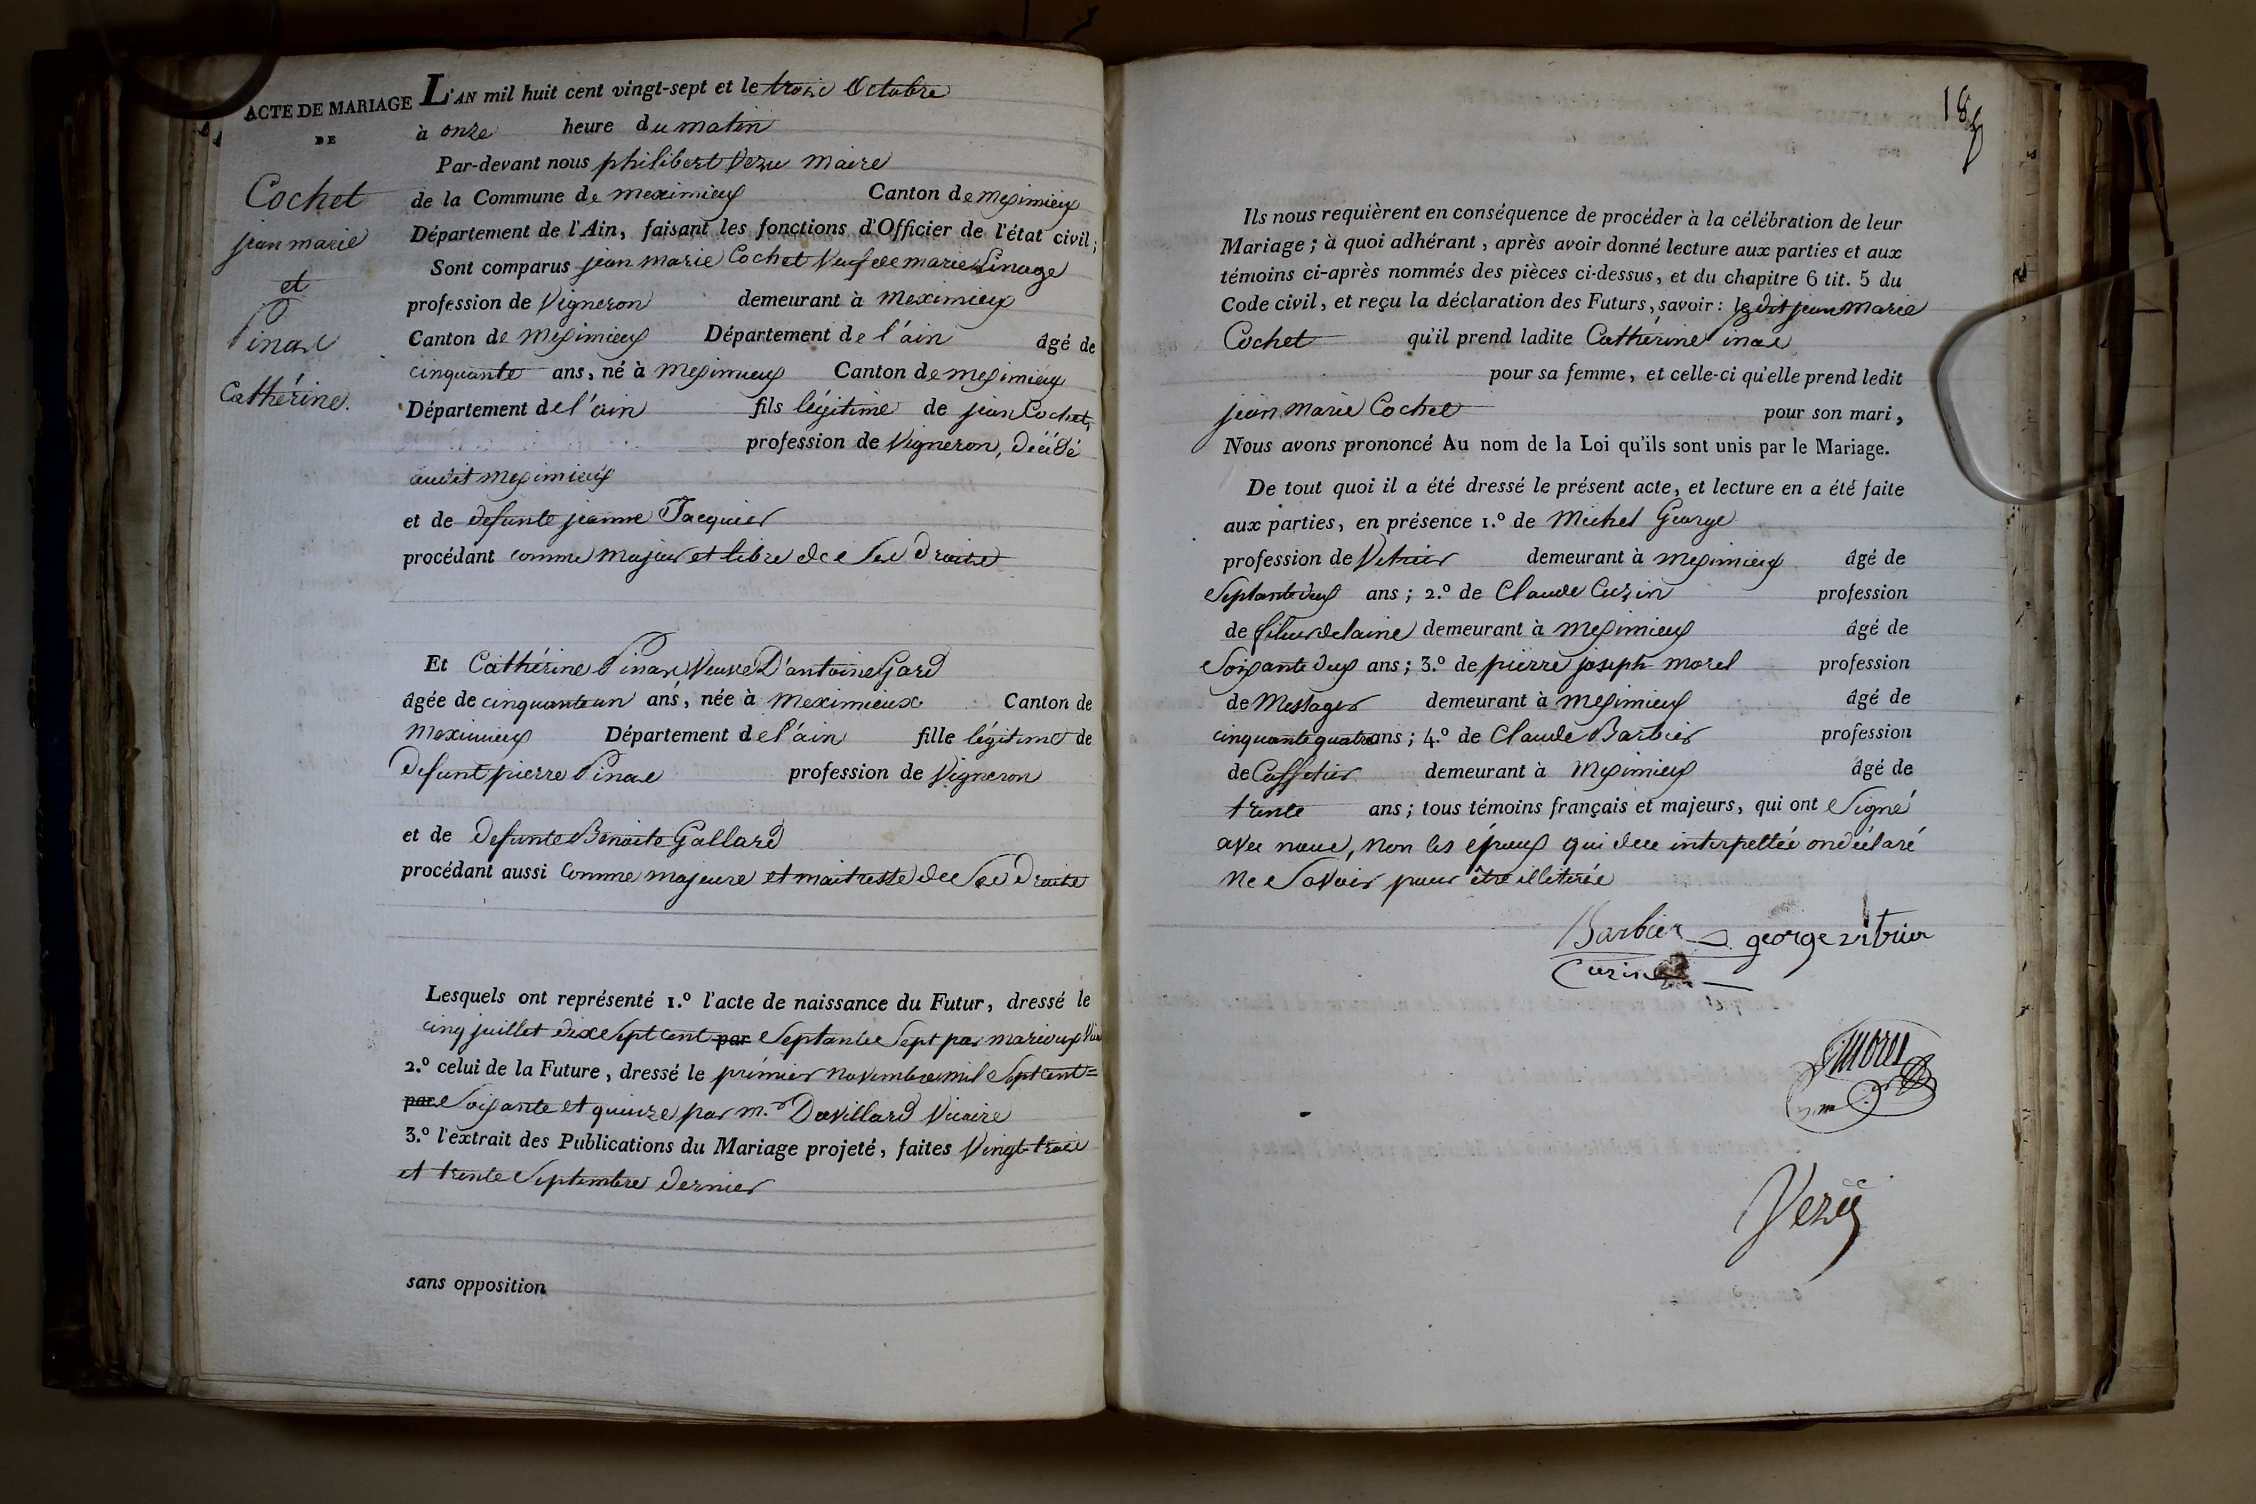 ACTE DE MARIAGE
DE
Cochet
jean marie
et
Pinar
Cathérine.
L'AN mil huit cent vingt-sept et le trois Octobre
à onze heure du matin
Par-devant nous philibert Vezu maire
de la Commune de meximieux Canton de meximieux
Département de l'Ain, faisant les fonctions d'Officier de l'état civil;
Sont comparus jean marie Cochet Veuf de marie
profession de Vigneron demeurant à meximieux
Canton de meximieux Département de l'ain âgé de
cinquante ans, né à meximieux Canton de meximieux
Département de l'ain fils légitime de jean Cochet,
profession de Vigneron, décédé
audit meximieux
et de defunte jeanne Jacquier
procédant comme majeur et libre de ses droits
Et Cathérine Pinar Veuve D'antoine Gard
âgée de cinquante un ans, née à meximieux Canton de
meximieux Département de l'ain fille légitime de
defunt pierre Pinar profession de Vigneron
et de defunte Benoite Gallard
procédant aussi Comme majeure et maitresse de ses droits
Lesquels ont représenté 1.º l'acte de naissance du Futur, dressé le
cinq juillet dix sept cent par septante sept par marioux
2.º celui de la Future, dressé le prémier novembre mil sept cent =
par soixante et quinze par m.r Davillard Vicaire
3.º l'extrait des Publications du Mariage projeté, faites Vingt trois
et trente septembre dernier
sans opposition
18
Ils nous requièrent en conséquence de procéder à la célébration de leur
Mariage; à quoi adhérant, après avoir donné lecture aux parties et aux
témoins ci-après nommés des pièces ci-dessus, et du chapitre 6 tit. 5 du
Code civil, et reçu la déclaration des Futurs, savoir: ledit jean Marie
Cochet qu'il prend ladite Cathérine Pinar
pour sa femme, et celle-ci qu'elle prend ledit
jean marie Cochet pour son mari,
Nous avons prononcé Au nom de la Loi qu'ils sont unis par le Mariage.
De tout quoi il a été dressé le présent acte, et lecture en a été faite
aux parties, en présence 1.º de Michel George
profession de Vitrier demeurant à meximieux âgé de
septante deux ans; 2.º de Claude Curin profession
de fileur de laine demeurant à meximieux âgé de
soixante deux ans; 3.º de pierre joseph morel profession
de Messager demeurant à meximieux âgé de
cinquante quatre ans; 4.º de Claude Barbier profession
de Caffetier demeurant à meximieux âgé de
trente ans; tous témoins français et majeurs, qui ont signé
avec nous, non les époux qui de ce interpellés on déclaré
ne savoir pour être illiterés
Barbier george vitrier
Curin
morel
Vezu